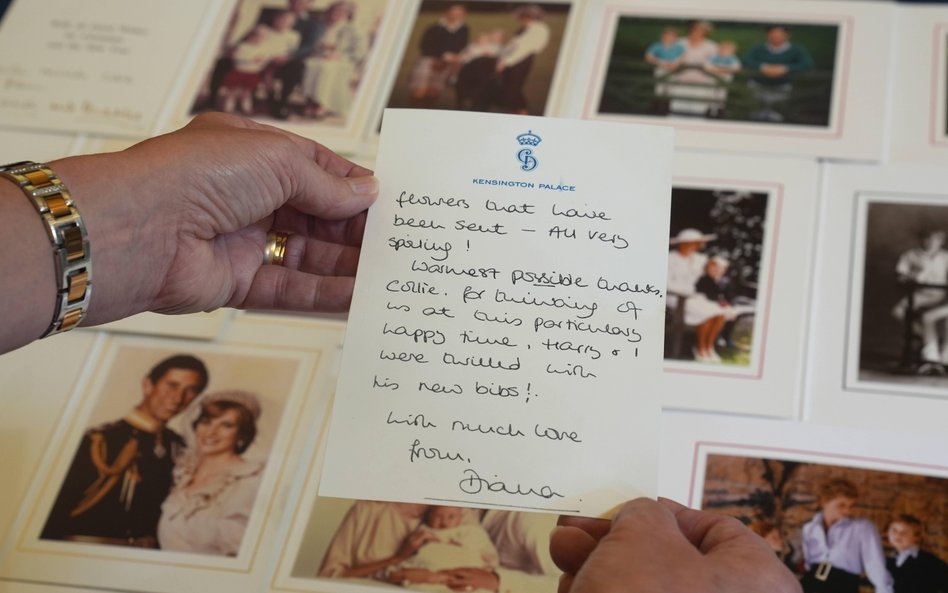 KENSINGTON PALACE
flowers that have
been sent — All very
spoiling!
Warmest possible thanks,
Collie, for thinking of
us at this particularly
happy time, Harry & I
were thrilled with
his new bibs!.
With much love
from,
Diana.